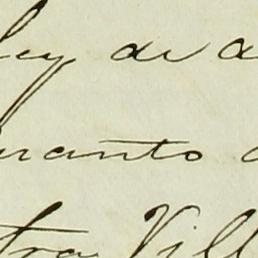 ley de a
uanto
tra Vill